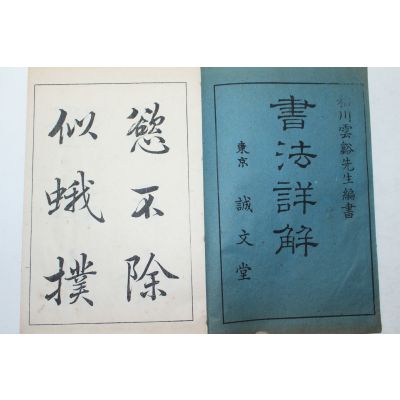 川雲谿先生編書
書法詳解
東京 誠文堂
慾不除
似蛾撲